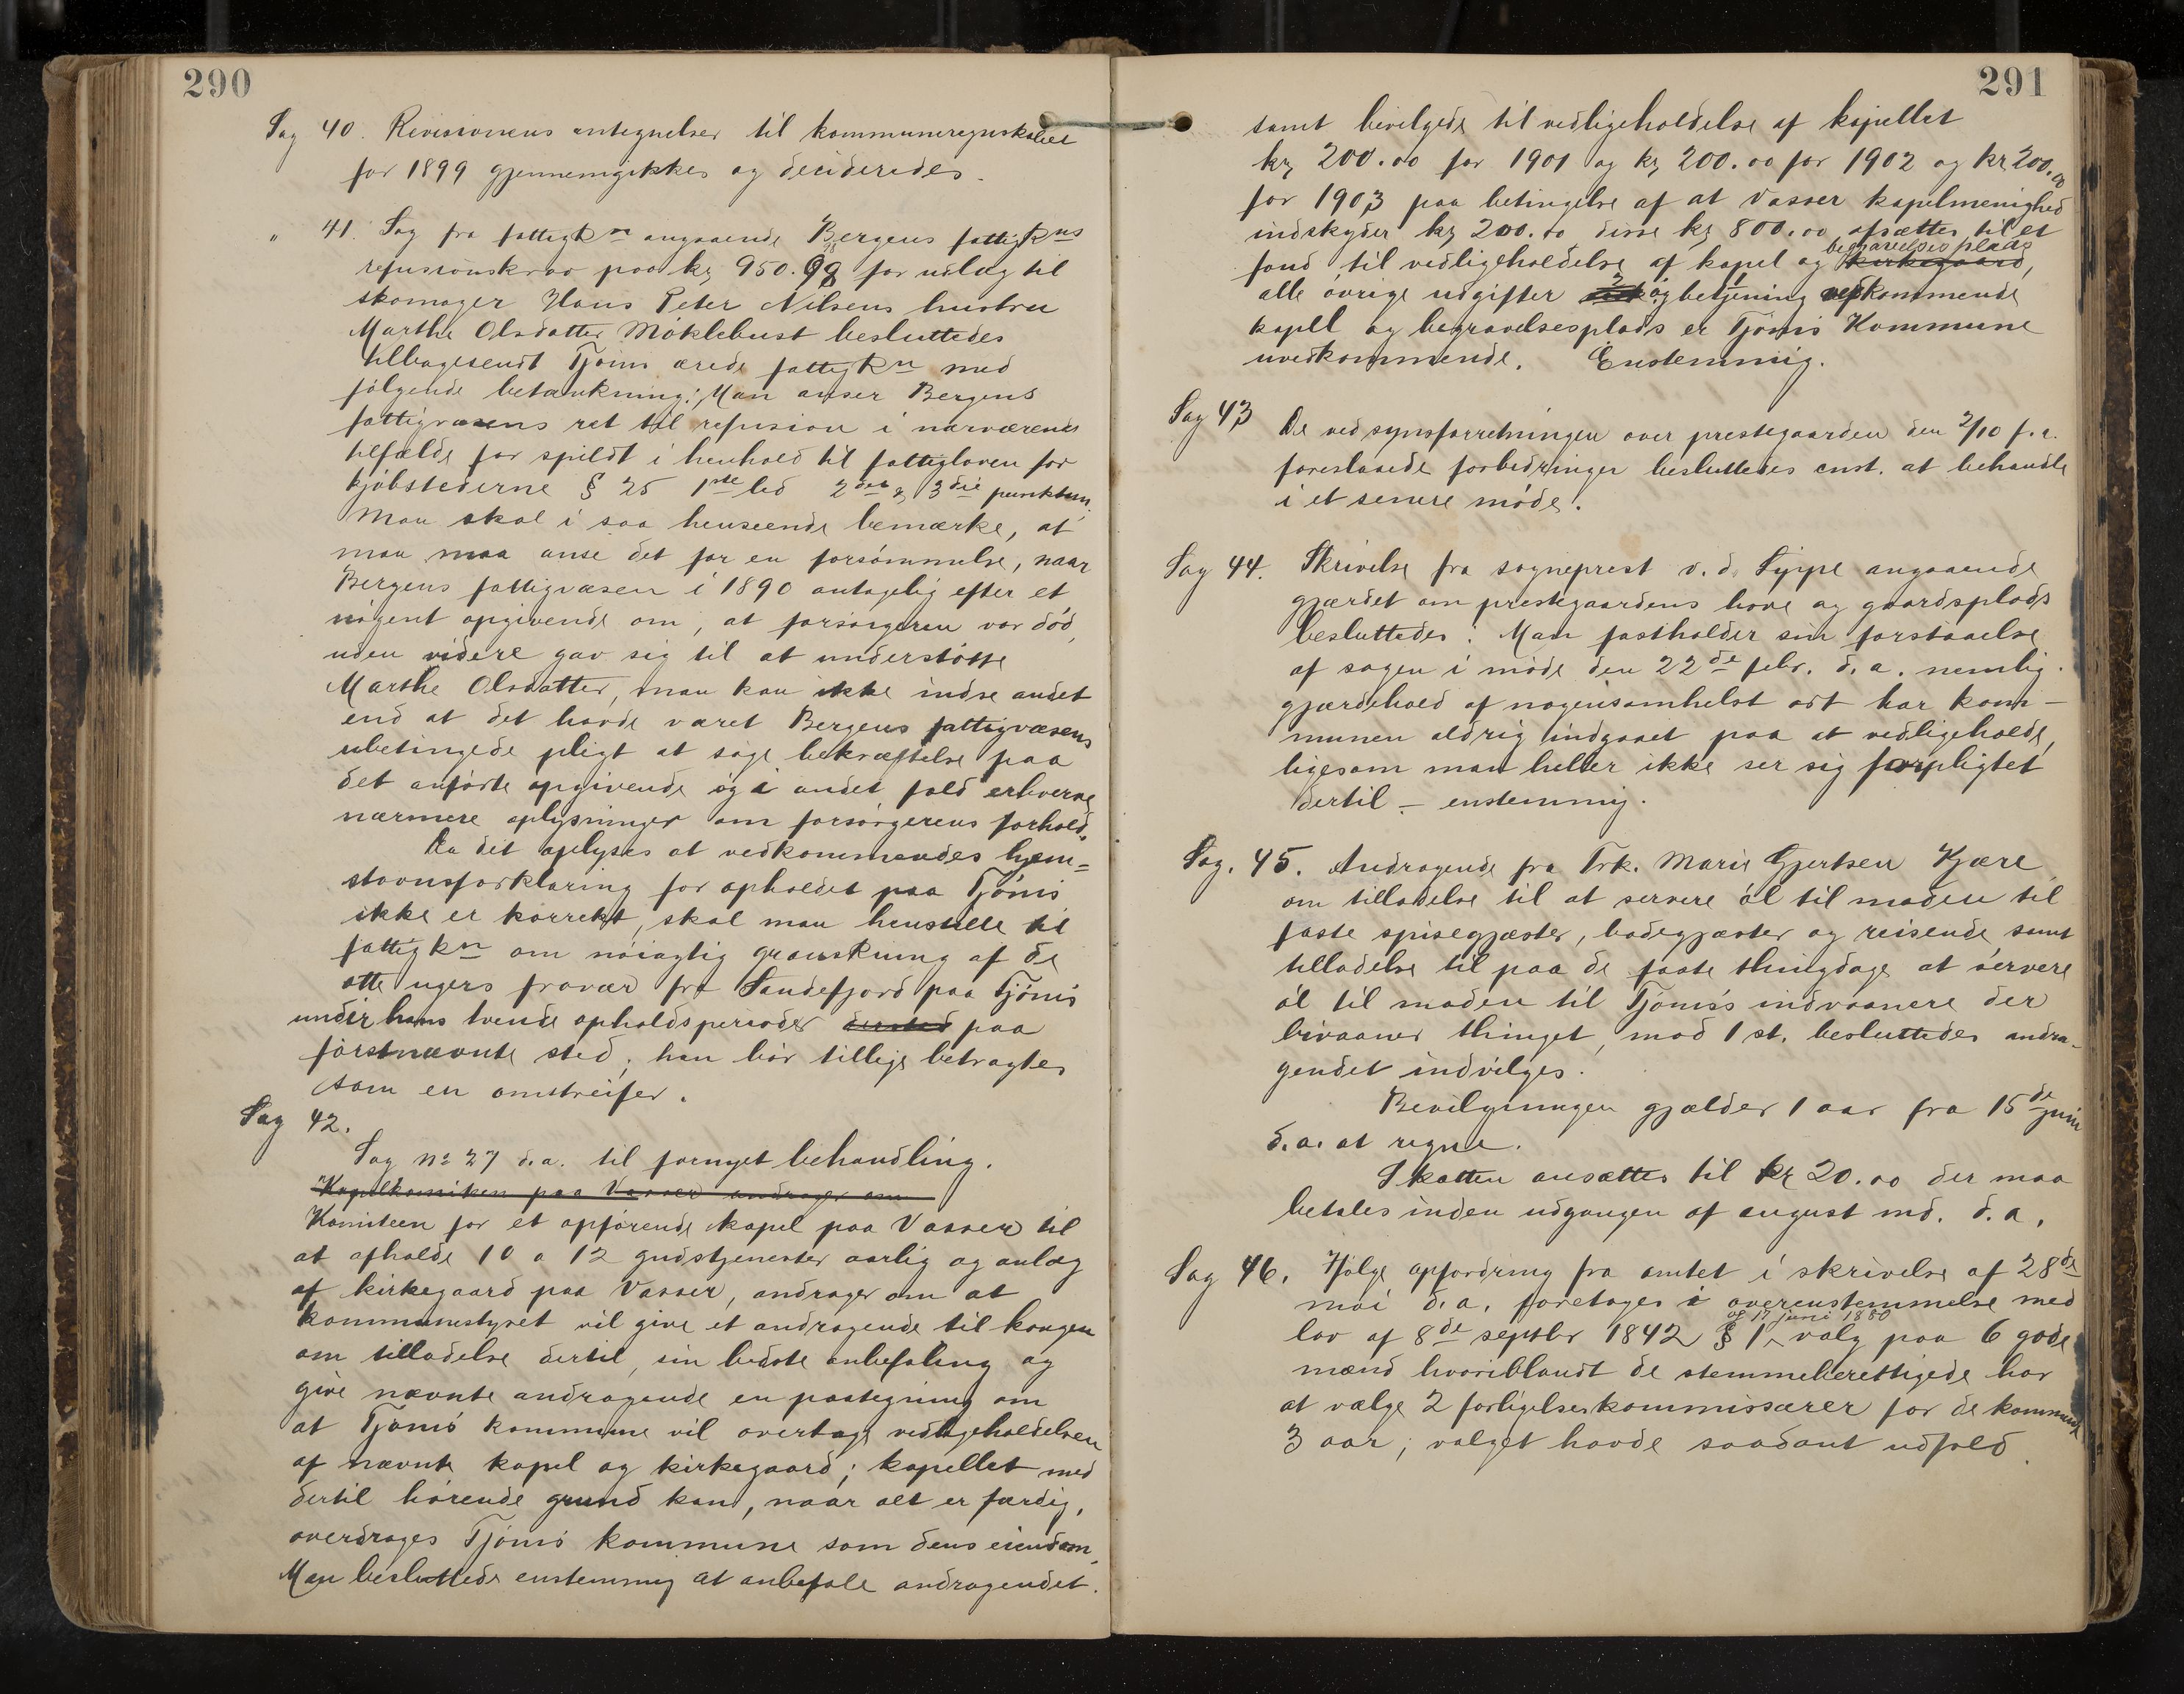 290
Sag 40. Revisionens antegnelser til kommuneregnskabet
for 1899 gjennemgikkes og deciderides.
" 41. Sag fra fattigkn angaaende Bergens fattigkns
refusionskrav paa kr 950.98 for udlæg til
skomager Hans Peter Nilsens hustru
Marthe Olsdatter Möklebust besluttedes
tilbagesendt Tjömö ærede fattigkn med
fölgende betænkning: Man anser Bergens
fattigvæsens ret til refusion i nærværende
tilfælde for spildt i henhold til fattigloven for
kjöbstederne § 25 1ste led 2den & 3die punktum.
Man skal i saa henseende bemærke, at
man maa anse det for en forsömmelse, naar
Bergens fattigvæsen i 1890 antagelig efter et
nögent opgivende om, at forsörgeren var död,
uden videre gav sig til at understötte
Marthe Olsdatter, man kan ikke indse andet
end at det havde været Bergens fattigvæsens
ubetingede pligt at söge bekræftelse paa
det anförte opgivende og i andet fald erhverve
nærmere oplysninger om forsörgerens forhold.
Da det oplyses at vedkommendes hjem=
stavnsforklaring for opholdet paa Tjömö
ikke er korrekt, skal man henstille til
fattigkn om nöiagtig granskning af de
otte ugers fravær fra Sandefjord paa Tjömö
under hans tvende opholdsperioder dersted paa
förstnævnte sted; han bör tillige betragtes
som en omstreifer.
Sag 42.
Sag No 27 d.a. til fornyet behandling.
"Kapelkomiteen paa Vasser andrager om
Komiteen for et opförende kapel paa Vasser til
at afholde 10 a 12 gudstjenester aarlig og anlæg
af kirkegaard paa Vasser, andrager om at
kommunestyret vil give et andragende til kongen
om tilladelse dertil, sin bedste anbefaling og
give nævnte andragende en paategning om
at Tjömö kommune vil overtage vedligeholdelsen
af nævnte kapel og kirkegaard; kapellet med
dertil hörende grund kan, naar alt er færdig,
overdrages Tjömö kommune som dens eiendom.
Man besluttede enstemmig at anbefale andragendet.
291
samt bevilgede til vedligeholdelse af kapellet
kr 200.00 for 1901 og kr 200.00 for 1902 og kr 200.00
for 1903 paa betingelse af at Vasser kapelmenighed
indskyder kr 200.00 disse kr 800.00 afsættes til et
begravelsesplads
fond til vedligeholdelse af kapel og kirkegaard,
alle övrige udgifter og betjening vedkommende
kapell og begravelsesplads er Tjömö Kommune
uvedkommende. Enstemmig.
Sag 43 De ved synsforretningen over prestegaarden den 2/10 f.a.
foreslaaede forbedringer besluttedes enst. at behandle
i et senere möde.
Sag 44. Skrivelse fra sogneprest v. d. Lippe angaaende
gjærdet om prestegaardens have og gaardsplads
besluttedes: Man fastholder sin forstaaelse
af sagen i möde den 22de febr. d.a. nemlig.
gjærdehold af nogensomhelst art har kom-
munen aldrig indgaaet paa at vedligeholde,
ligesom man heller ikke ser sig forpligtet
dertil – enstemmig.
Sag. 45. Andragende fra Frk. Marie Gjertsen Kjære
om tilladelse til at servere öl til maden til
faste spisegjæster, badegjæster og reisende samt
tilladelse til paa de faste thingdage at servere
öl til maden til Tjömö's indvaanere der
bivaaner thinget, mod 1 st. besluttedes andra-
gendet indvilges.
Bevilgningen gjælder 1 aar fra 15de juni
d.a. at regne.
Skatten ansættes til kr 20.00 der maa
betales inden udgangen af august md. d.a.
Sag 46. Ifölge opfordring fra amtet i skrivelse af 28de
mai d.a. foretages i overenstemmelse med
af 17 juni 1880
lov af 8de septbr 1842 § 1, valg paa 6 gode
mænd hvoriblandt de stemmeberettigede har
at vælge 2 forligelseskommissærer for de kommende
3 aar; valget havde saadant udfald.